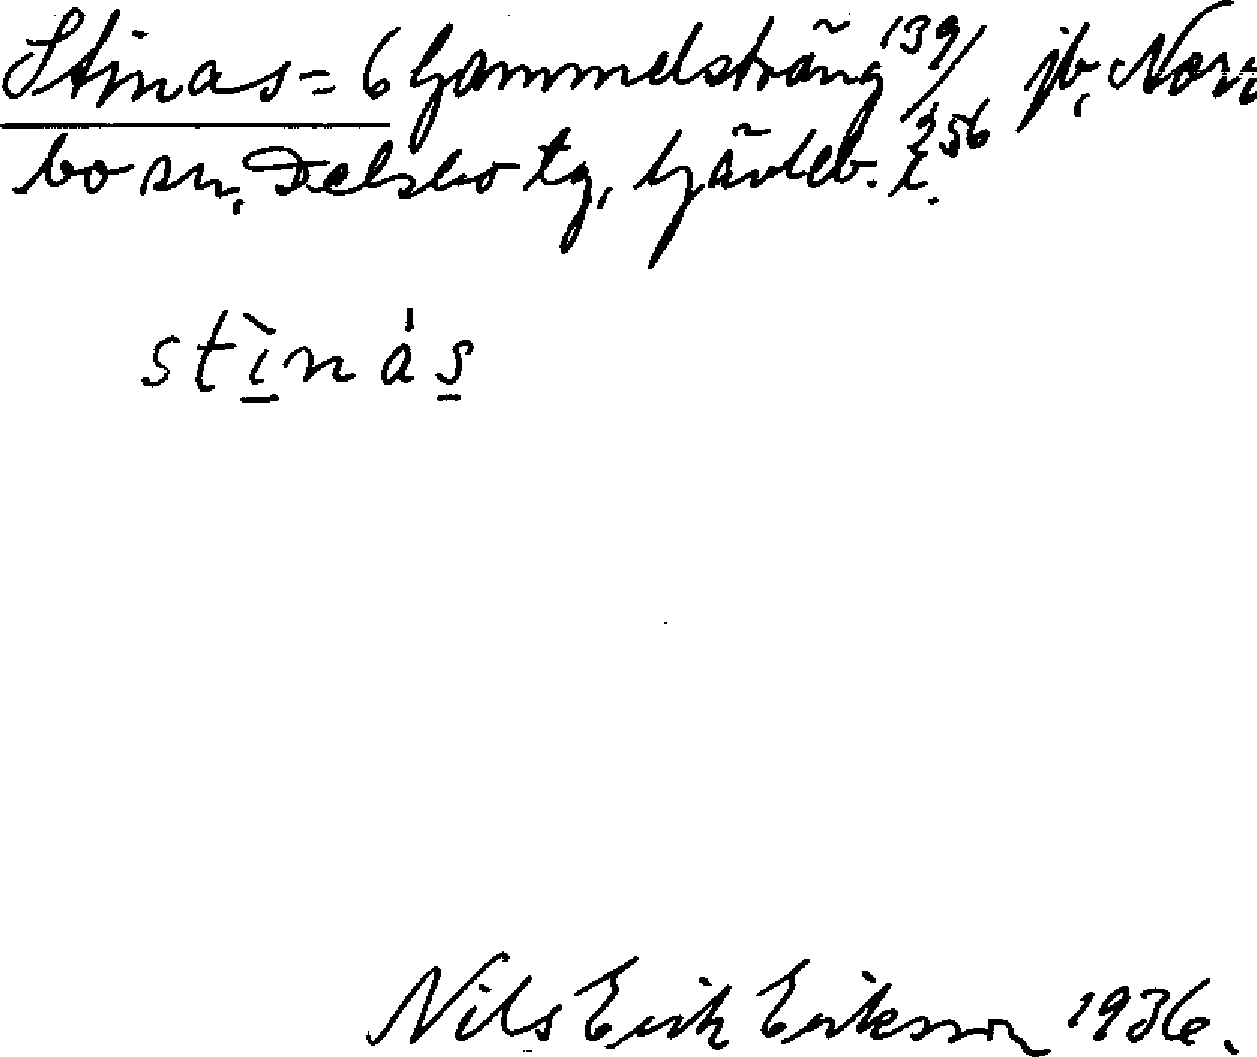 Stinas = 6 Gammelsträng 139/256 jb, Norr
bo sn, Delsbo tg, Gävleb. l.
stìnás
Nils Erik Eriksson 1936.